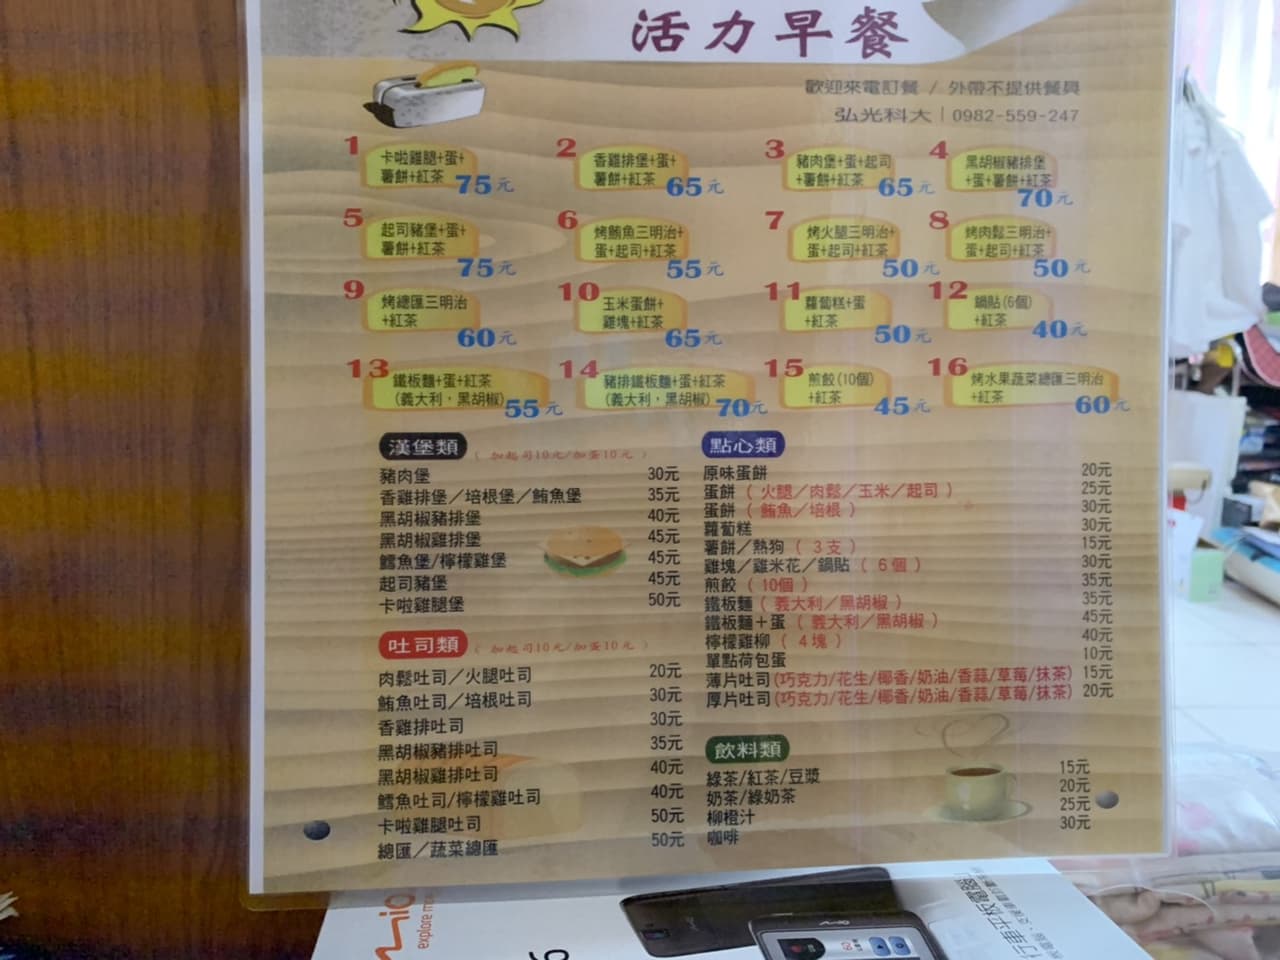 活力早餐
歡迎來電訂餐 / 外帶不提供餐具
弘光科大 | 0982-559-247
1 卡啦雞腿+蛋+
薯餅+紅茶 75元
2 香雞排堡+蛋+
薯餅+紅茶 65元
3 豬肉堡+蛋+起司
+薯餅+紅茶 65元
4 黑胡椒豬排堡
+蛋+薯餅+紅茶
70元
5 起司豬堡+蛋+
薯餅+紅茶
75元
6 烤鮪魚三明治+
蛋+起司+紅茶
55元
7 烤火腿三明治+
蛋+起司+紅茶
50元
8 烤肉鬆三明治+
蛋+起司+紅茶
50元
9 烤總匯三明治
+紅茶
60元
10 玉米蛋餅+
雞塊+紅茶
65元
11 蘿蔔糕+蛋
+紅茶
50元
12 鍋貼(6個)
+紅茶
40元
13 鐵板麵+蛋+紅茶
(義大利，黑胡椒) 55元
14 豬排鐵板麵+蛋+紅茶
(義大利，黑胡椒) 70元
15 煎餃(10個)
+紅茶 45元
16 烤水果蔬菜總匯三明治
+紅茶 60元
漢堡類 ( 加起司10元/加蛋10元 )
豬肉堡 30元
香雞排堡／培根堡／鮪魚堡 35元
黑胡椒豬排堡 40元
黑胡椒雞排堡 45元
鱈魚堡/檸檬雞堡 45元
起司豬堡 45元
卡啦雞腿堡 50元
吐司類 ( 加起司10元/加蛋10元 )
肉鬆吐司／火腿吐司 20元
鮪魚吐司／培根吐司 30元
香雞排吐司 30元
黑胡椒豬排吐司 35元
黑胡椒雞排吐司 40元
鱈魚吐司/檸檬雞吐司 40元
卡啦雞腿吐司 50元
總匯／蔬菜總匯 50元
點心類
原味蛋餅 20元
蛋餅（火腿／肉鬆／玉米／起司） 25元
蛋餅（鮪魚／培根） 30元
蘿蔔糕 30元
薯餅／熱狗（3支） 15元
雞塊／雞米花／鍋貼（6個） 30元
煎餃（10個） 35元
鐵板麵（義大利／黑胡椒） 35元
鐵板麵＋蛋（義大利／黑胡椒） 45元
檸檬雞柳（4塊） 40元
單點荷包蛋 10元
薄片吐司(巧克力/花生/椰香/奶油/香蒜/草莓/抹茶) 15元
厚片吐司(巧克力/花生/椰香/奶油/香蒜/草莓/抹茶) 20元
飲料類
綠茶/紅茶/豆漿 15元
奶茶/綠奶茶 20元
柳橙汁 25元
咖啡 30元
Mio
explore more
行車平板電腦